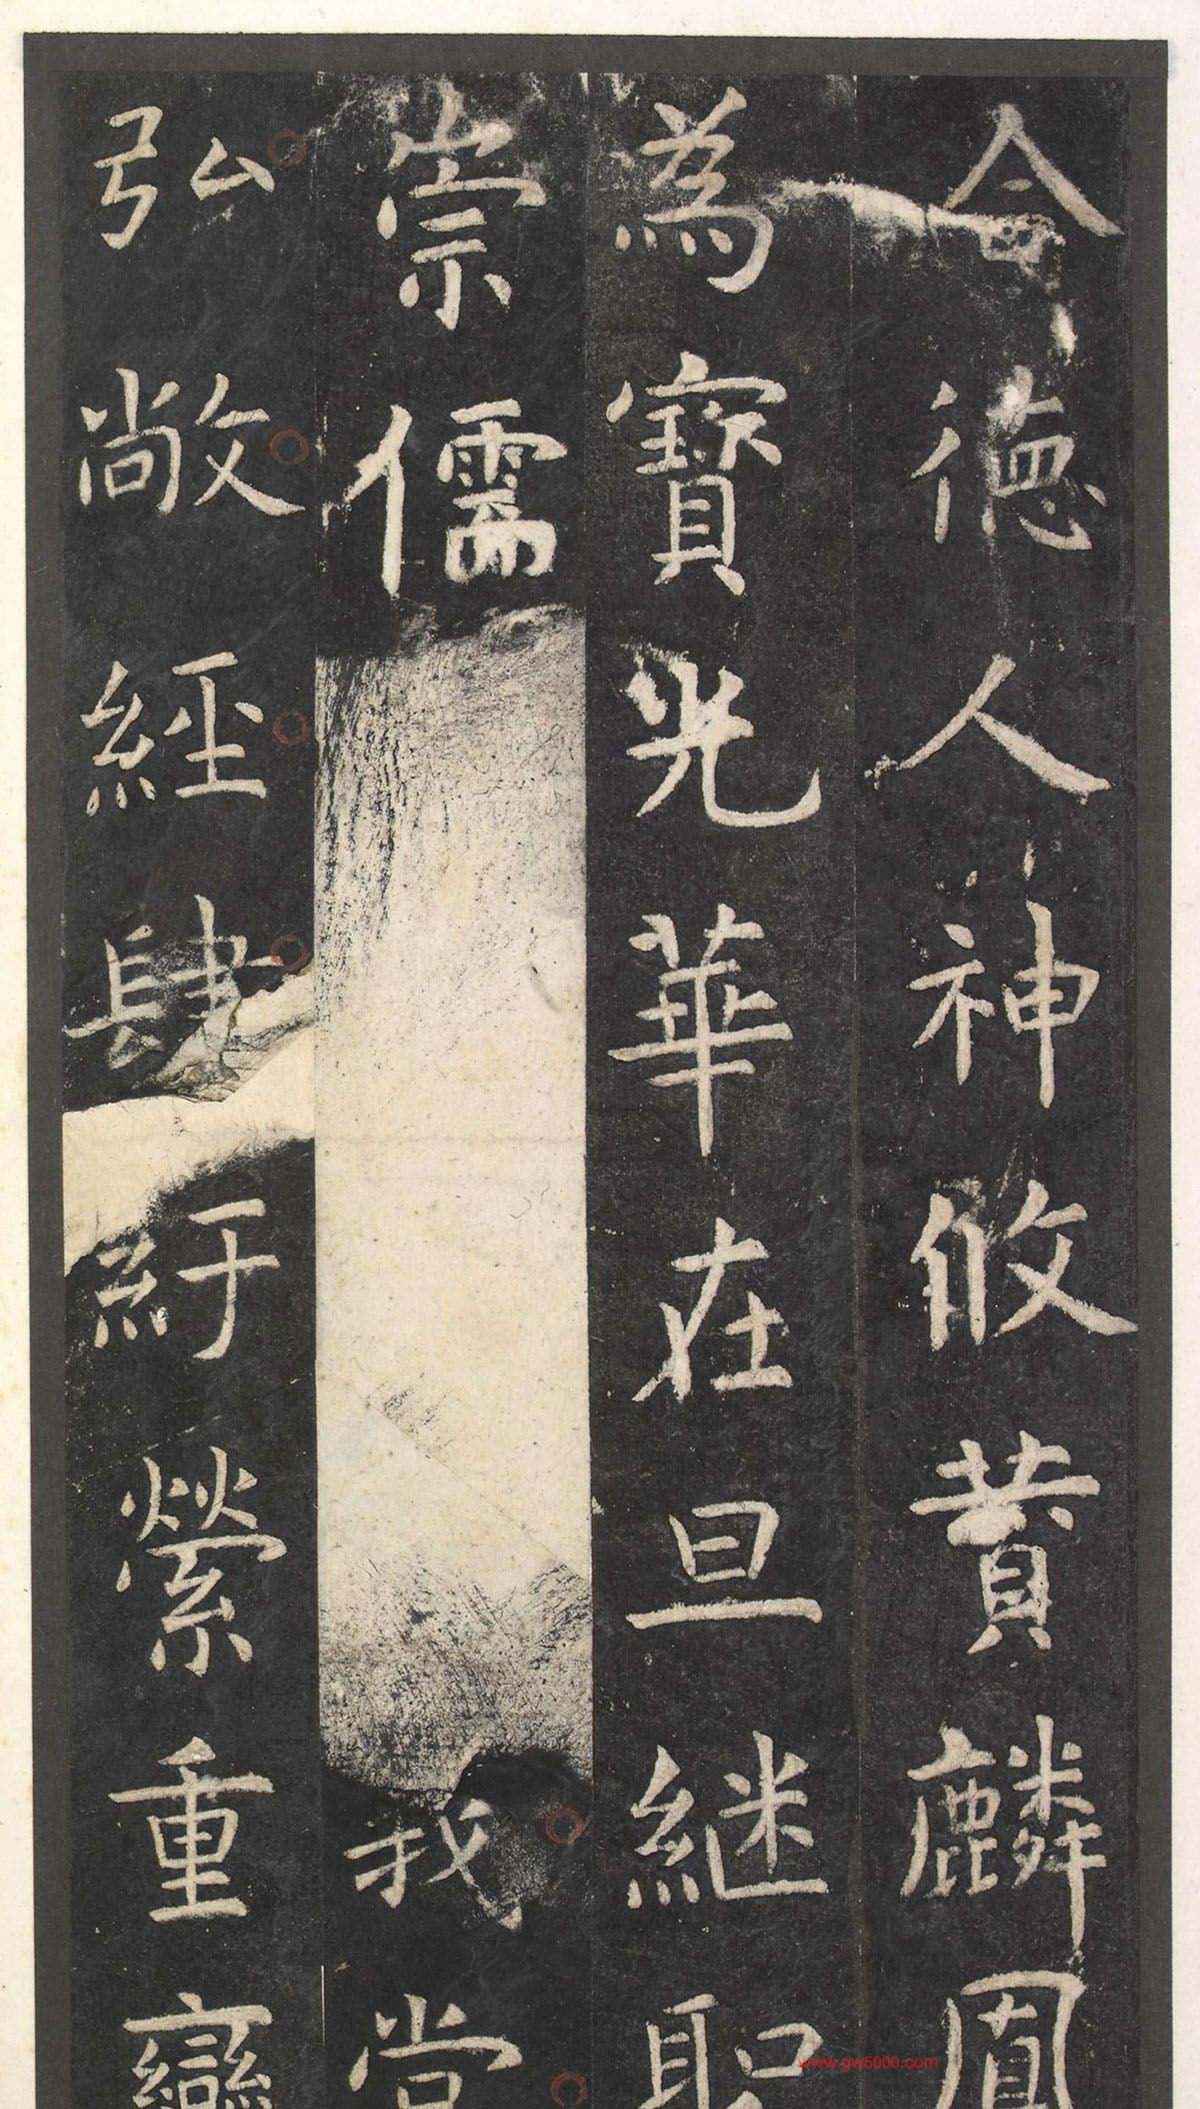 合德人神攸贊麟鳳
為寶光華在旦継聖
崇儒我尝
弘敞經肆紆縈重欒
www.gw5000.com